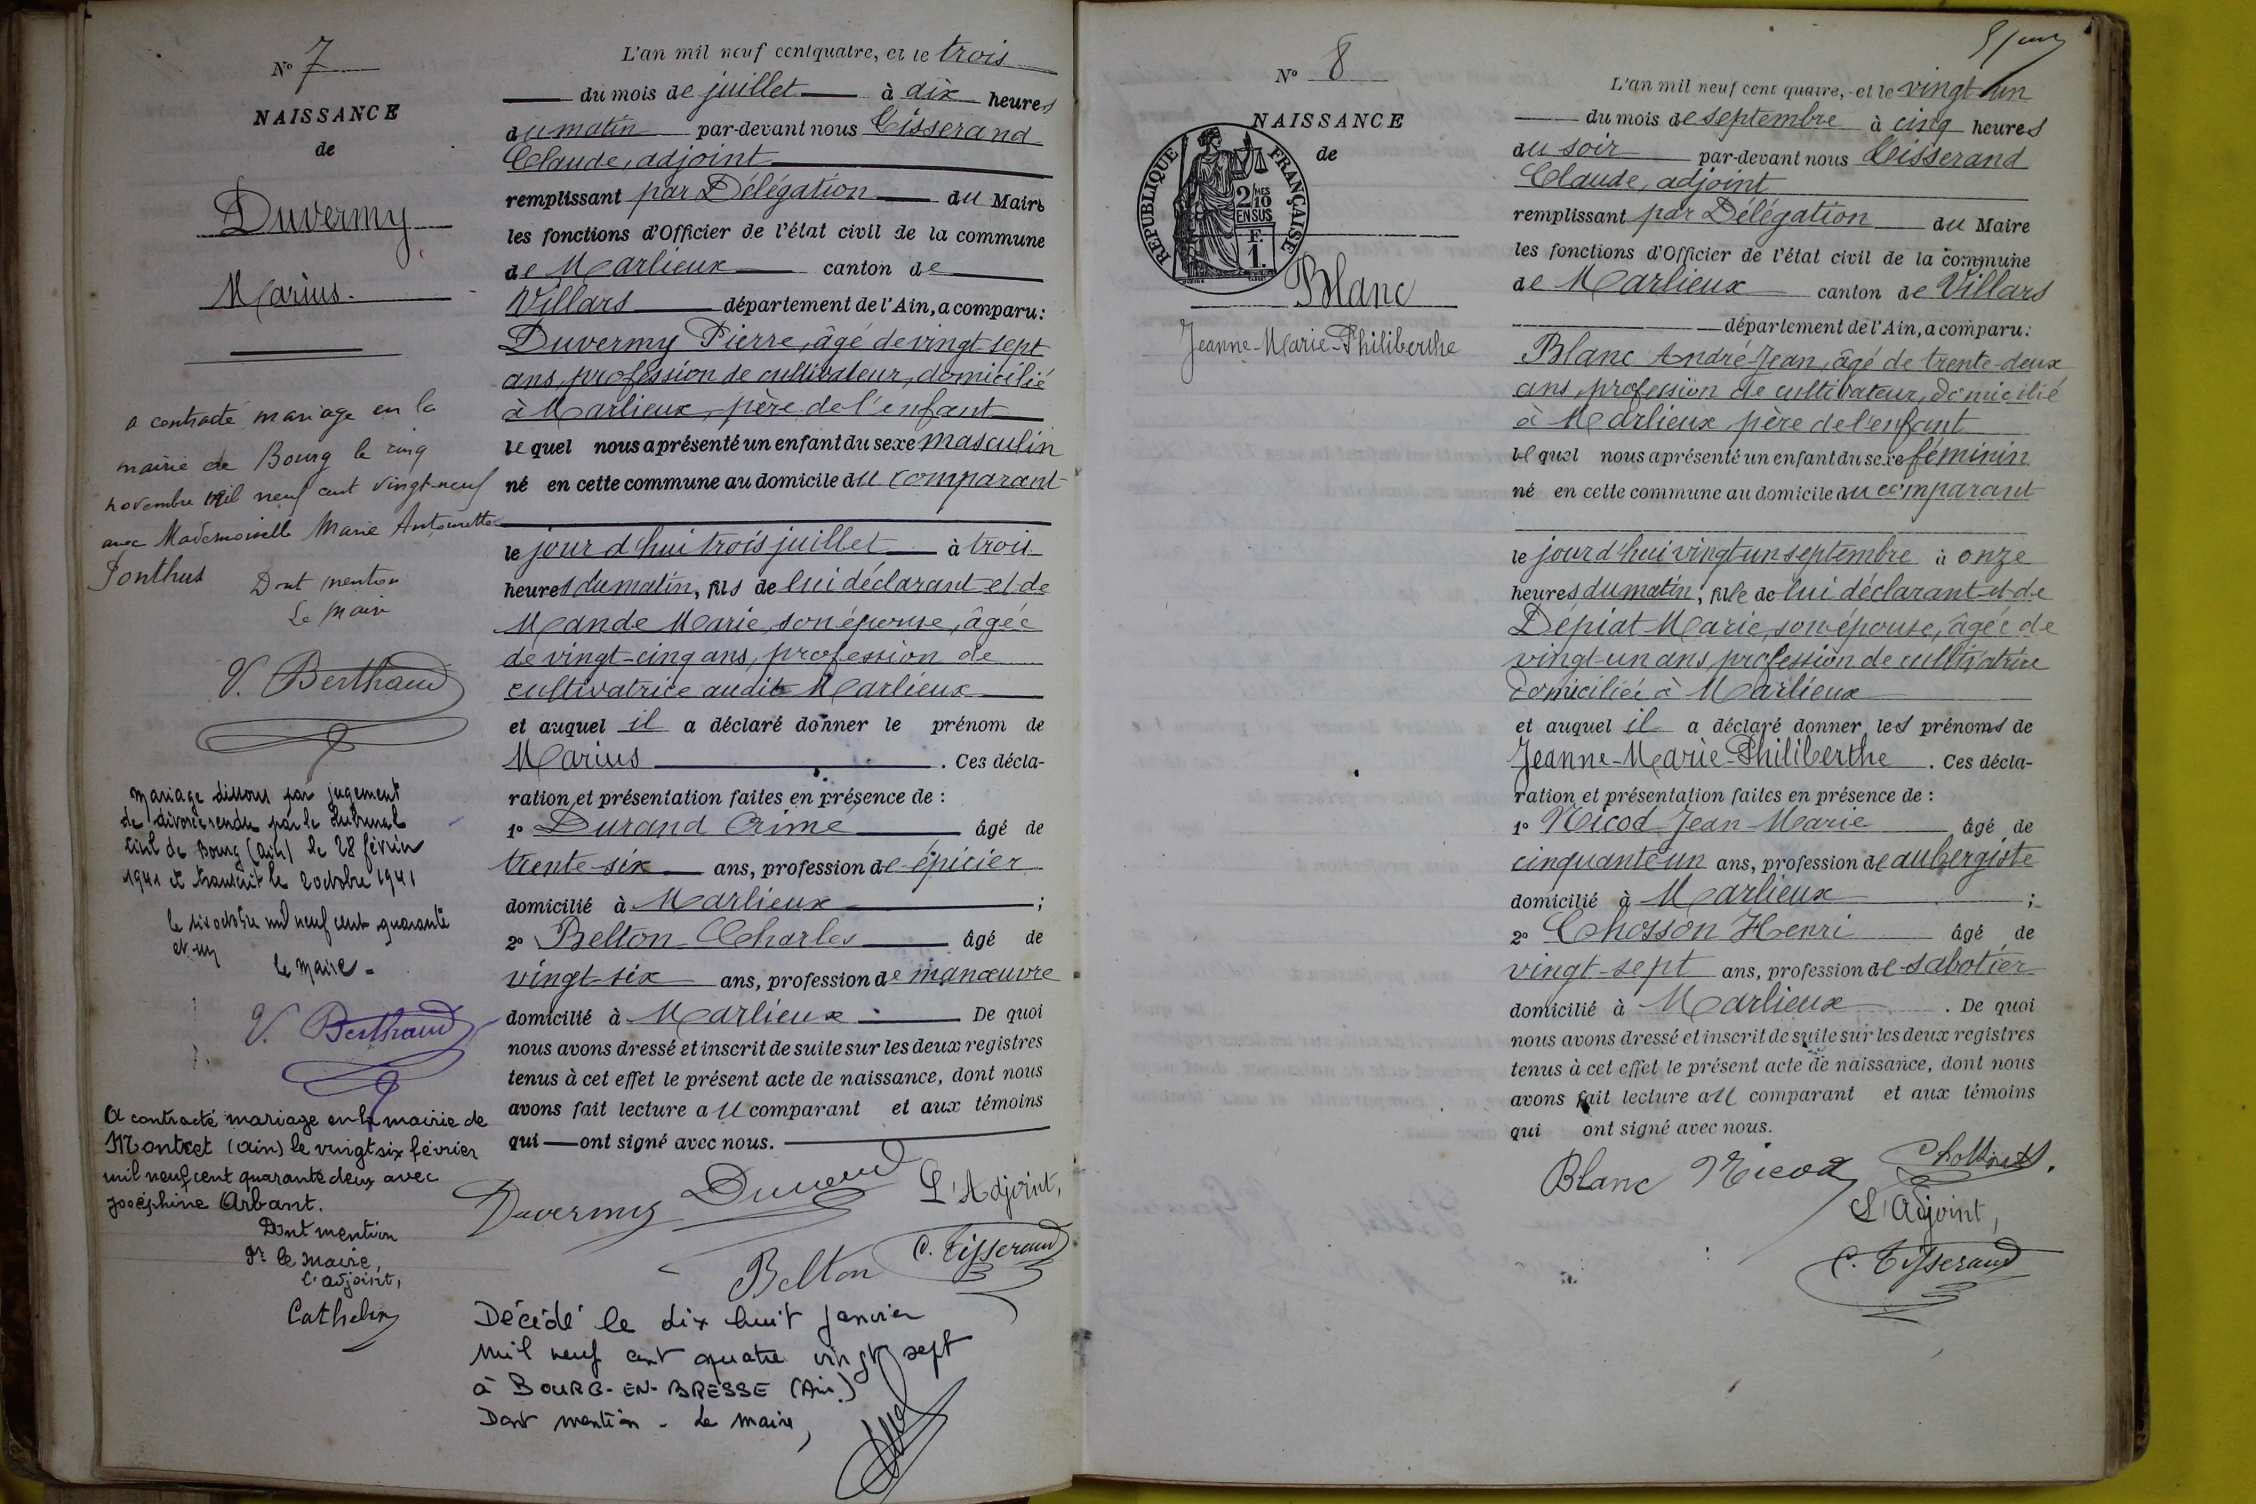 N° 7
NAISSANCE
de
Duvermy
Marius.
a contracté mariage en la
mairie de Bourg le cinq
novembre mil neuf cent vingt-neuf
avec Mademoiselle Marie Antoinette
Ponthus Dont mention
Le Maire
V. Berthaud
Mariage dissous par jugement
de divorce rendu par le tribunal
civil de Bourg (Ain) le 28 février
1941 et transcrit le 2 octobre 1941
le six octobre mil neuf cent quarante
et un
le Maire.
V. Berthaud
A contracté mariage en la mairie de
Montcet (ain) le vingt six février
mil neuf cent quarante deux avec
Joséphine Arbant.
Dont mention
Pr le Maire,
l'adjoint,
Cathelin
L'an mil neuf cent quatre, et le trois
du mois de juillet à dix heures
du matin par-devant nous Tisserand
Claude, adjoint
remplissant par Délégation du Maire
les fonctions d'Officier de l'état civil de la commune
de Marlieux canton de
Villars département de l'Ain, a comparu:
Duvermy Pierre, âgé de vingt-sept
ans, profession de cultivateur, domicilié
à Marlieux, père de l'enfant
lequel nous a présenté un enfant du sexe masculin
né en cette commune au domicile du comparant
le jour d'hui trois juillet à trois
heures du matin, fils de lui déclarant et de
Mande Marie, son épouse, âgée
de vingt-cinq ans, profession de
cultivatrice audit Marlieux
et auquel il a déclaré donner le prénom de
Marius . Ces décla-
ration et présentation faites en présence de :
1° Durand Crime âgé de
trente-six ans, profession de épicier
domicilié à Marlieux ;
2° Belton Charles âgé de
vingt-six ans, profession de manœuvre
domicilié à Marlieux . De quoi
nous avons dressé et inscrit de suite sur les deux registres
tenus à cet effet le présent acte de naissance, dont nous
avons fait lecture au comparant et aux témoins
qui ont signé avec nous.
Duvermy Durand L'Adjoint,
Belton C. Tisserand
Décédé le dix huit Janvier
Mil neuf cent quatre vingt sept
à BOURG-EN-BRESSE (Ain)
Dont mention - Le Maire,
N° 8
NAISSANCE
de
REPUBLIQUE FRANÇAISE
2/10 MES
EN SUS
F.
1.
Blanc
Jeanne-Marie-Philiberthe
L'an mil neuf cent quatre, et le vingt un
du mois de septembre à cinq heures
du soir par-devant nous Tisserand
Claude, adjoint
remplissant par Délégation du Maire
les fonctions d'Officier de l'état civil de la commune
de Marlieux canton de Villars
département de l'Ain, a comparu:
Blanc André-Jean, âgé de trente-deux
ans, profession de cultivateur, domicilié
à Marlieux père de l'enfant
lequel nous a présenté un enfant du sexe féminin
né en cette commune au domicile du comparant
le jour d'hui vingt un septembre à onze
heures du matin, fille de lui déclarant et de
Dépiat Marie, son épouse, âgée de
vingt-un ans, profession de cultivatrice
domiciliée à Marlieux
et auquel il a déclaré donner les prénoms de
Jeanne-Marie-Philiberthe . Ces décla-
ration et présentation faites en présence de :
1° Nicod Jean-Marie âgé de
cinquante-un ans, profession de aubergiste
domicilié à Marlieux ;
2° Chosson Henri âgé de
vingt-sept ans, profession de sabotier
domicilié à Marlieux . De quoi
nous avons dressé et inscrit de suite sur les deux registres
tenus à cet effet le présent acte de naissance, dont nous
avons fait lecture au comparant et aux témoins
qui ont signé avec nous.
Blanc Nicod Chosson
L'Adjoint,
C. Tisserand